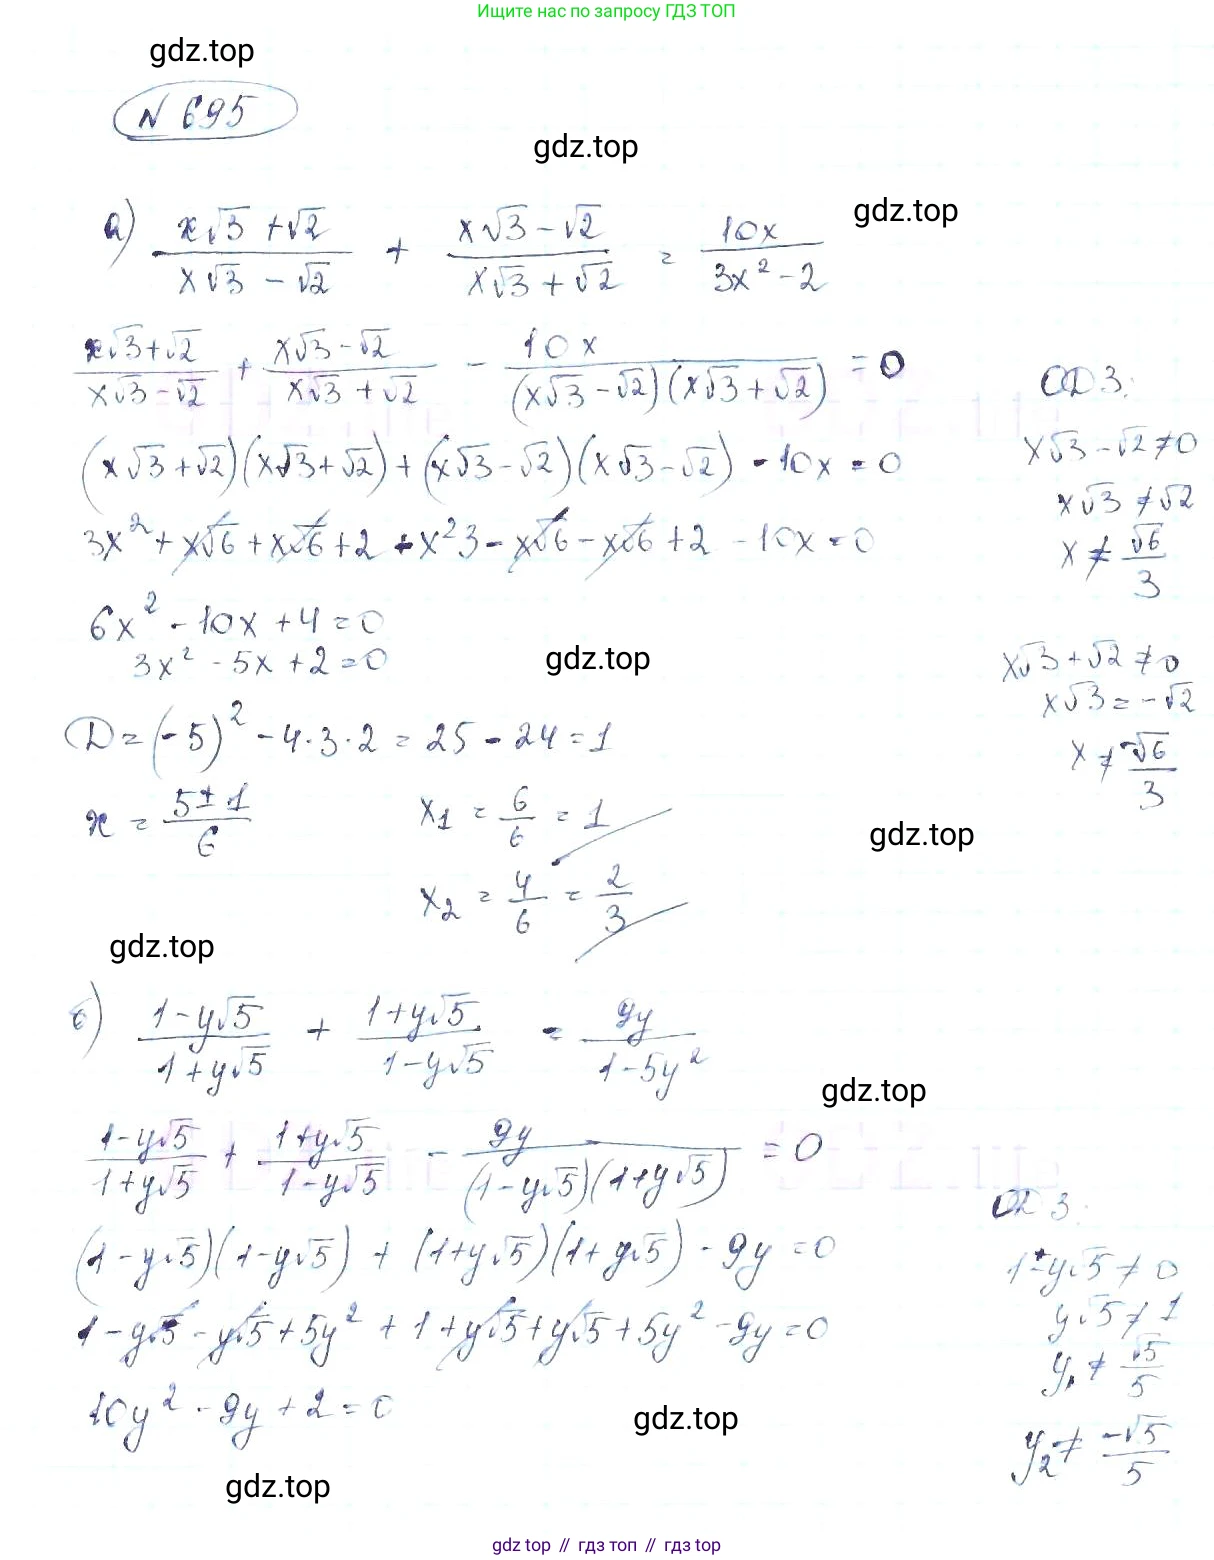 Ищите нас по запросу ГДЗ ТОП
gdz.top
N 695
gdz.top
gdz.top
а) (x√3 + √2)/(x√3 − √2) + (x√3 − √2)/(x√3 + √2) = 10x/(3x² − 2)
(x√3+√2)/(x√3−√2) + (x√3−√2)/(x√3+√2) − 10x/((x√3−√2)(x√3+√2)) = 0
ОДЗ:
(x√3+√2)(x√3+√2) + (x√3−√2)(x√3−√2) − 10x = 0
x√3 − √2 ≠ 0
x√3 ≠ √2
3x² + x√6 + x√6 + 2 + x²3 − x√6 − x√6 + 2 − 10x = 0
x ≠ √6/3
6x² − 10x + 4 = 0
3x² − 5x + 2 = 0
gdz.top
x√3 + √2 ≠ 0
x√3 = −√2
D = (−5)² − 4·3·2 = 25 − 24 = 1
x ≠ −√6/3
x = (5 ± 1)/6
x₁ = 6/6 = 1
gdz.top
x₂ = 4/6 = 2/3
gdz.top
б) (1−y√5)/(1+y√5) + (1+y√5)/(1−y√5) = 9y/(1−5y²)
gdz.top
(1−y√5)/(1+y√5) + (1+y√5)/(1−y√5) − 9y/((1−y√5)(1+y√5)) = 0
ОДЗ:
(1−y√5)(1−y√5) + (1+y√5)(1+y√5) − 9y = 0
1±y√5 ≠ 0
y√5 ≠ 1
1 − y√5 − y√5 + 5y² + 1 + y√5 + y√5 + 5y² − 9y = 0
y₁ ≠ √5/5
10y² − 9y + 2 = 0
gdz.top
y₂ ≠ −√5/5
gdz.top
gdz top // гдз топ // гдз top